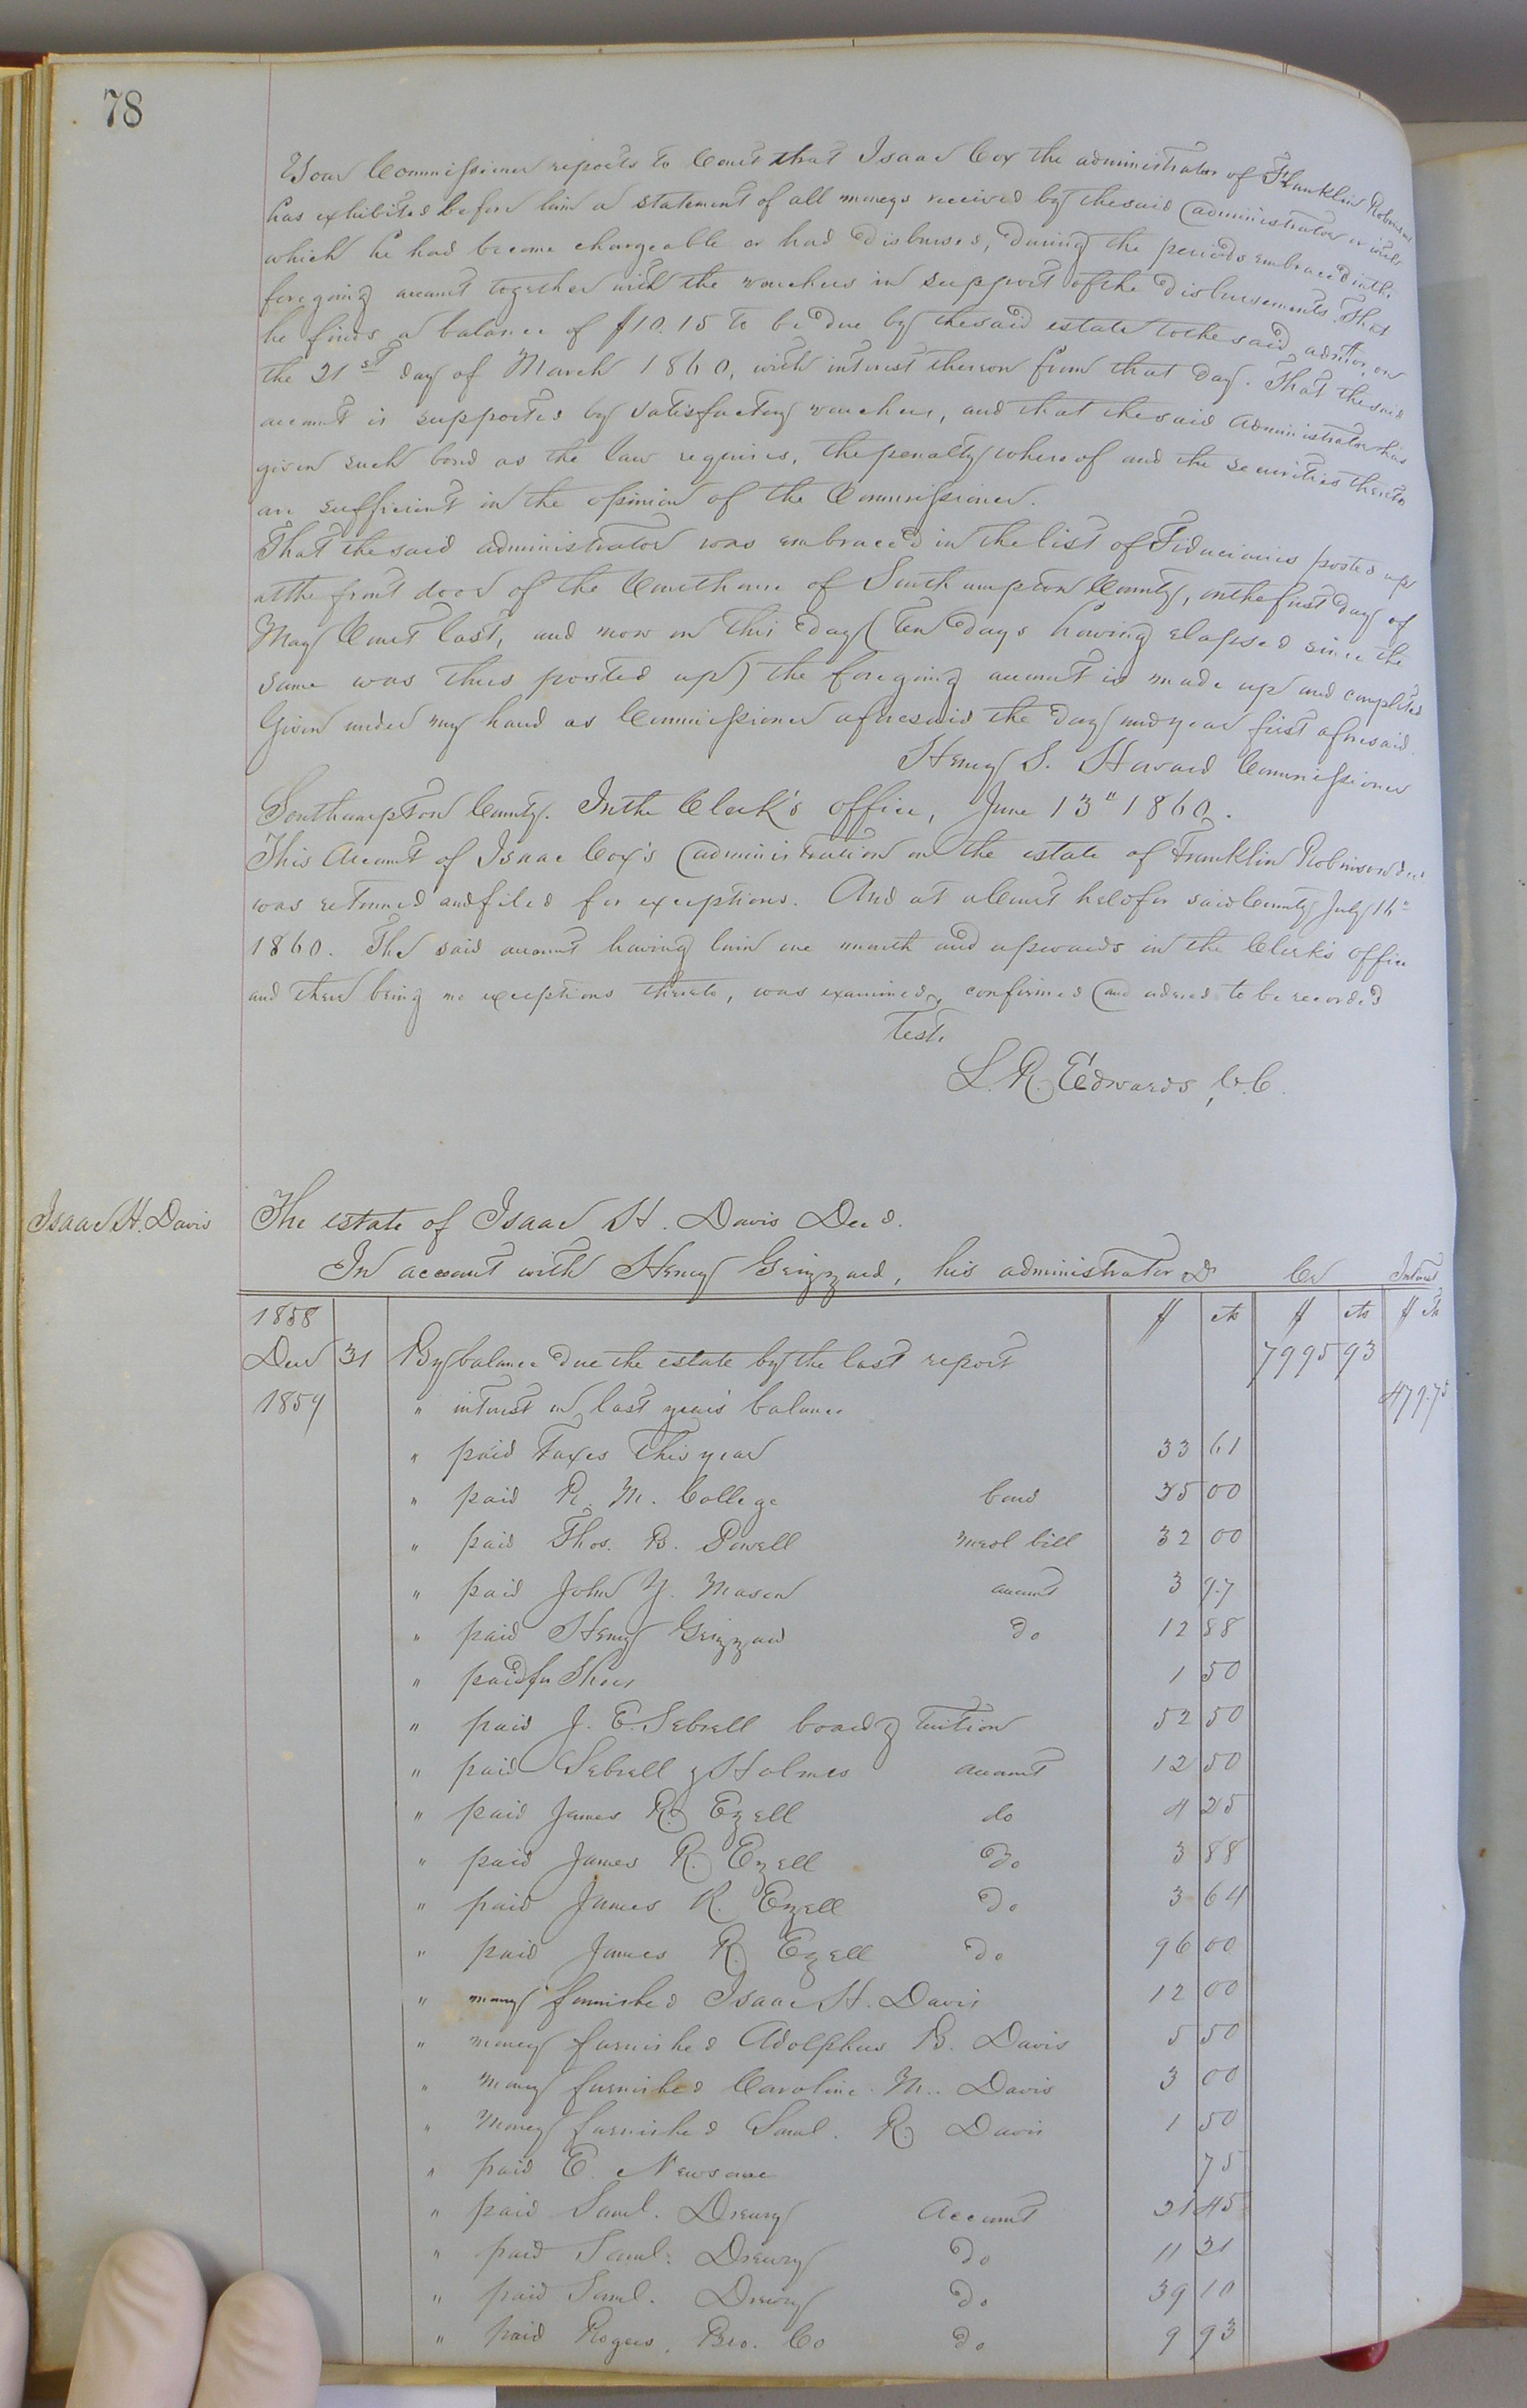 78
Your Commissioner reports to Court that Isaac Cox the administrator of Franklin Robinson
has exhibited before him a statement of all moneys received by the said administrator or with
which he had become chargeable or had disbursed, during the periods embraced in the
foregoing account together with the vouchers in support of the disbursements. That
he finds a balance of $10.15 to be due by the said estate to the said admtor, on
the 21st day of March 1860, with interest thereon from that day. That the said
account is supported by satisfactory vouchers, and that the said administrator has
given such bond as the law requires, the penalty whereof and the securities thereto
are sufficient in the opinion of the Commissioner.
That the said administrator was embraced in the list of Fiduciaries posted up
at the front door of the Courthouse of Southampton County, on the first day of
May Court last, and now on this day (ten days having elapsed since the
same was thus posted up) the foregoing account is made up and completed
Given under my hand as Commissioner aforesaid the day and year first aforesaid.
Henry S. Howard Commissioner
Southampton County. In the Clerk's office, June 13" 1860.
This Account of Isaac Cox's administration on the estate of Franklin Robinson Decd
was returned and filed for exceptions. And at a Court held for said County July 16"
1860. The said account having lain one month and upwards in the Clerk's office
and there being no exceptions thereto, was examined, confirmed and ordered to be recorded
Test.
L. R. Edwards, C.C.
Isaac H. Davis
The estate of Isaac H. Davis Decd.
In account with Henry Grizzard, his administrator Dr Cr Interest
1858 $ cts $ cts $ cts
Decr 31 By balance due the estate by the last report 7995 93
1859 " interest on last years balance 479.75
" paid Taxes this year 33 61
" paid R. M. College bond 35 00
" paid Thos. B. Powell medl bill 32 00
" paid John Y. Mason account 3 97
" paid Henry Grizzard do 12 88
" paid for Shoes 1 50
" paid J. E. Sebrell board & tuition 52 50
" paid Sebrell & Holmes account 12 50
" paid James R. Ezell do 4 25
" paid James R. Ezell Do 3 88
" paid James R. Ezell Do 3 64
" paid James R. Ezell Do 96 00
" money furnished Isaac H. Davis 12 00
" money furnished Adolphus B. Davis 5 50
" money furnished Caroline M. Davis 3 00
" Money furnished Saml. R. Davis 1 50
" paid E. Newsome 75
" paid Saml. Drewry Account 21 45
" paid Saml. Drewry Do 11 21
" paid Saml. Drewry Do 39 10
" paid Rogers, Bro. Co Do 9 93